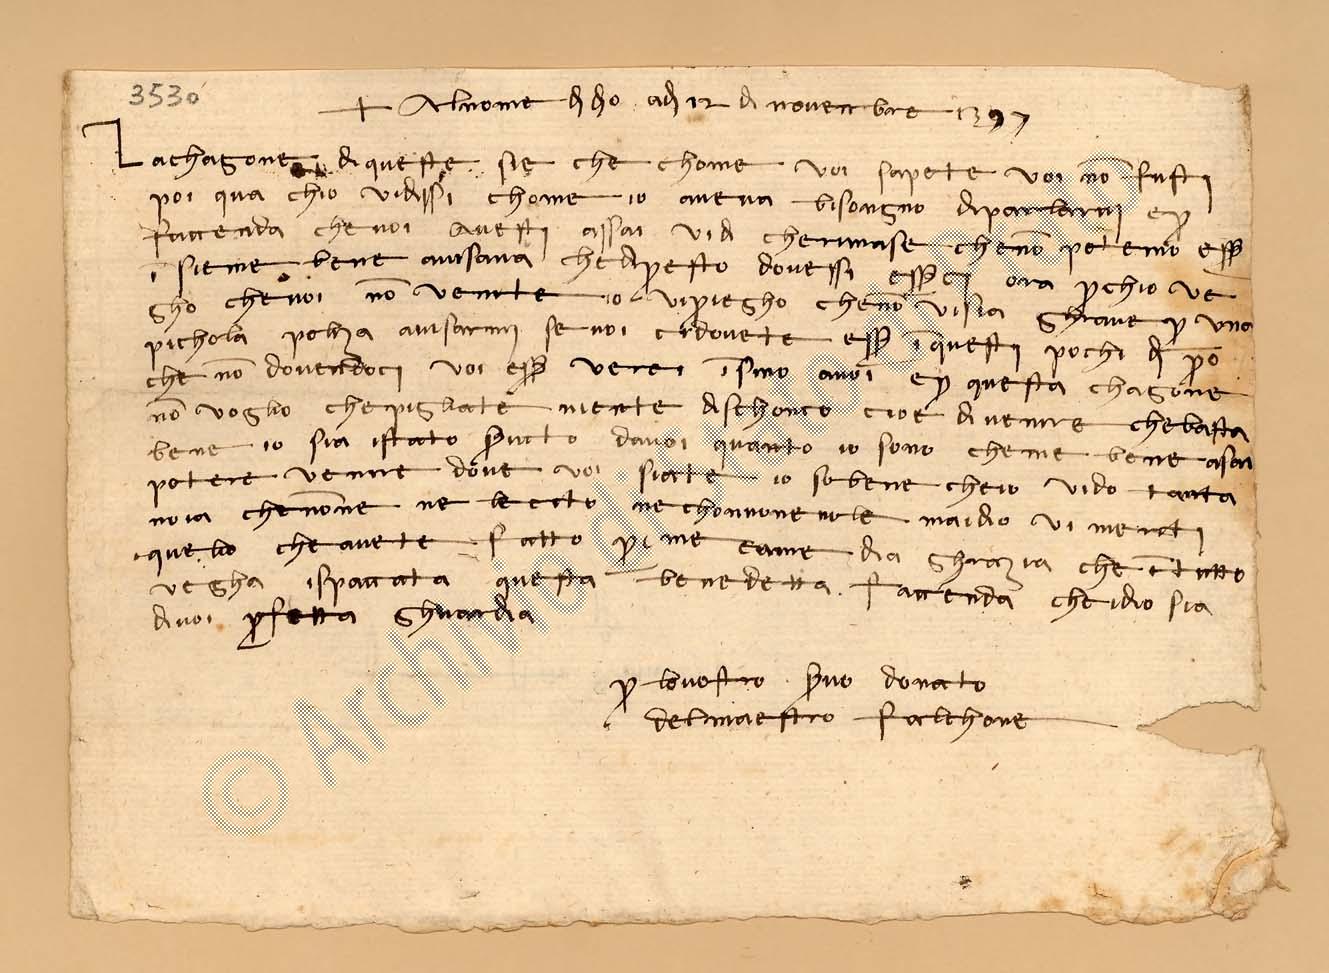 3530
+ Al nome di dio adi 12 di novenbre 1397
La chagone di queste sie che chome voi sapete voi nō fusti
poi qua chio vidissi chome io aveva bisongno di parlarvi e p
faccenda che voi avesti assai vidi che rimase che nō potemo ess
īsieme bene avisava che di presto dovessi esserci ora p chio ve
gho che voi nō venite io vi priegho che nō vi sia ghrave p una
pichola poliza avisarmi se voi ci dovete ess ī questi pochi di pō
che nō dovendoci voi ess verei īsino a voi e p questa chagone
nō voglio che pigliate niente di schonco cioe di venire che basta
bene io sia istato servito da voi quanto io sono che me bene asai
potere venire dove voi siate io so bene che io vi do tanta
noia che nōne ne lecito ne chonvonevole ma idio vi meriti
quello che avete fatto p me e a me dia ghrazia che ī tutto
vegha ispacciata questa benedetta faccenda che idio sia
di voi pfetta ghuardia
p lo vostro donato
del maestro falchone
© Archivio di Stato di Prato